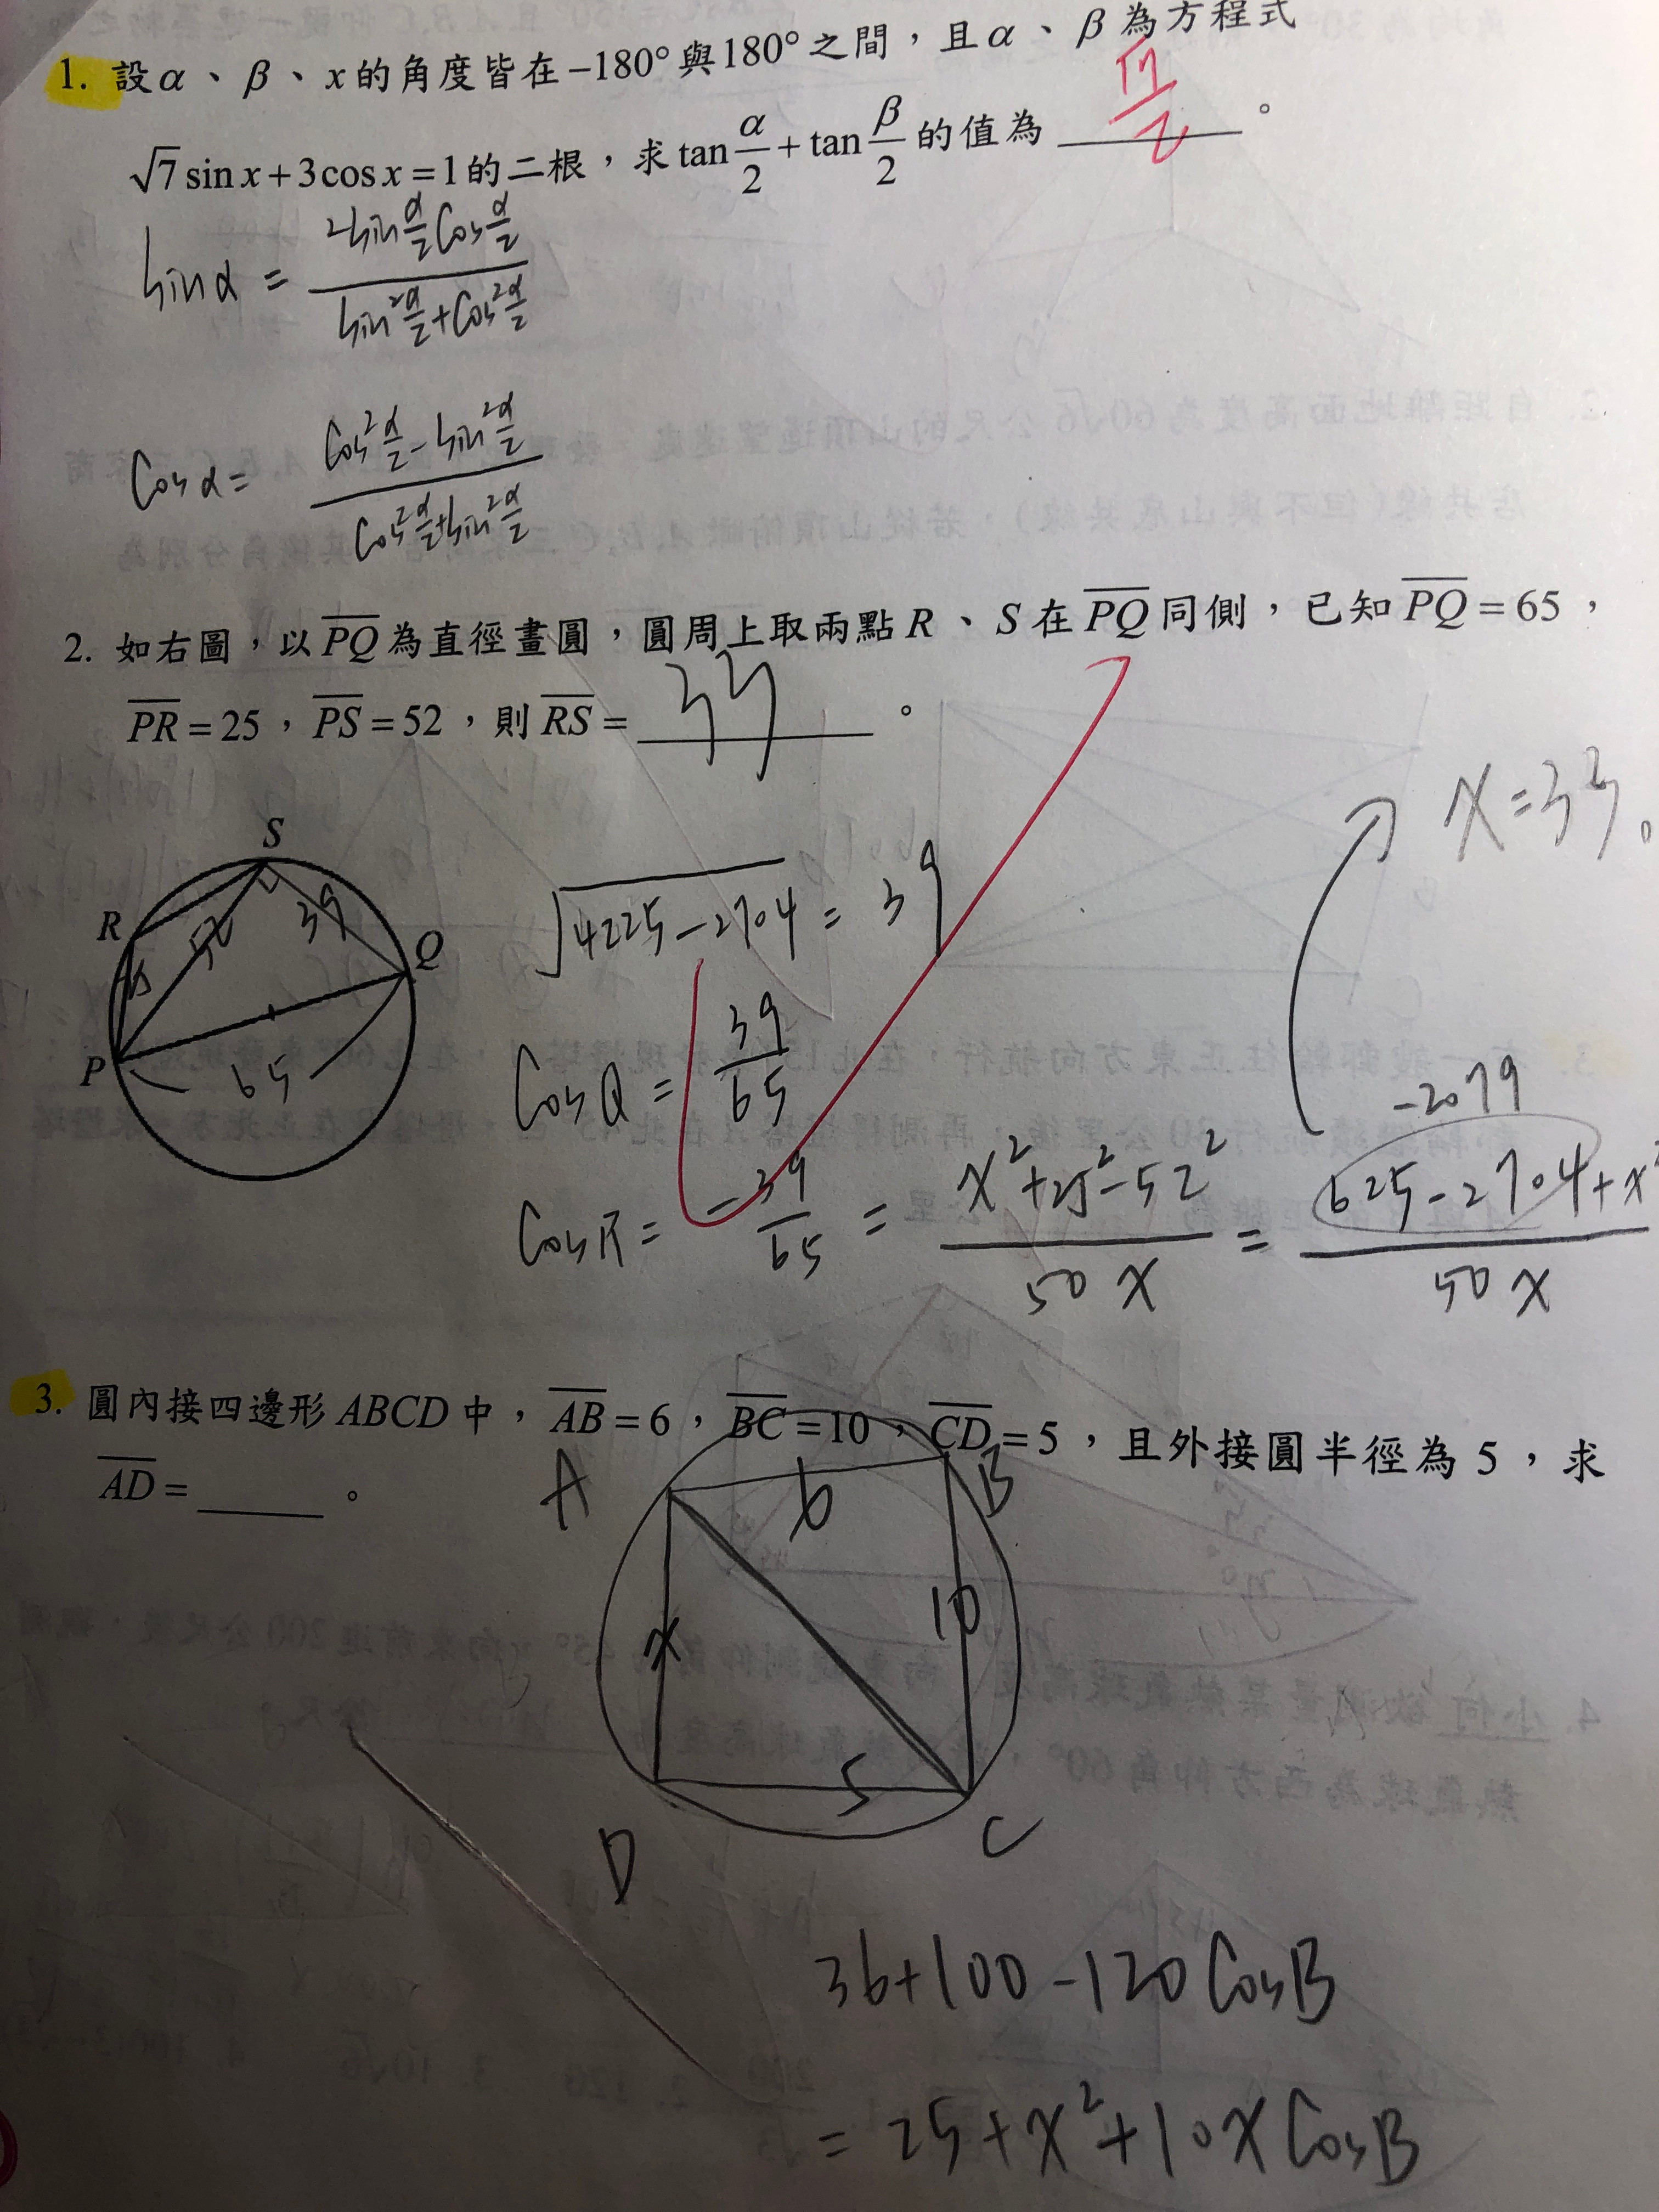 1. 設α、β、x的角度皆在−180°與180°之間，且α、β為方程式
√7 sin x + 3cos x = 1的二根，求tan α/2 + tan β/2 的值為 √7/2 。
sinα = 2sin α/2 cos α/2 / (sin² α/2 + cos² α/2)
cosα = (cos² α/2 − sin² α/2) / (cos² α/2 + sin² α/2)
2. 如右圖，以PQ為直徑畫圓，圓周上取兩點R、S在PQ同側，已知PQ = 65，
PR = 25，PS = 52，則RS = 33 。
x = 33。
S
R
Q
P
52
39
25
65
√4225 − 2704 = 39
cosQ = 39/65
−2079
cosR = −39/65 = (x² + 25² − 52²) / 50x = (625 − 2704 + x²) / 50x
3. 圓內接四邊形ABCD中，AB = 6，BC = 10，CD = 5，且外接圓半徑為5，求
AD = 。
A
B
6
x
10
5
D
C
36 + 100 − 120 cosB
= 25 + x² + 10x cosB